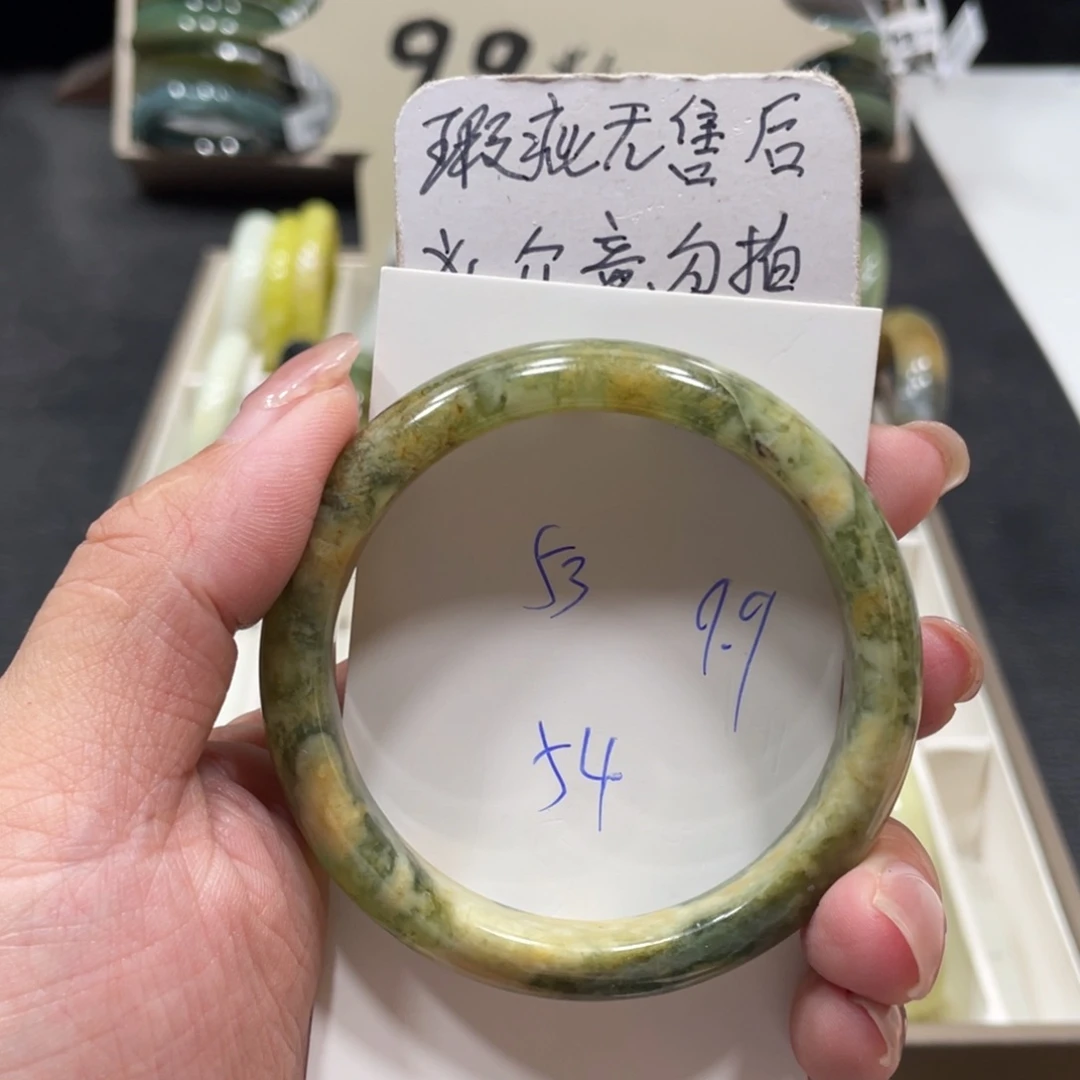 99
瑕疵无售后
介意勿拍
53
9.9
54